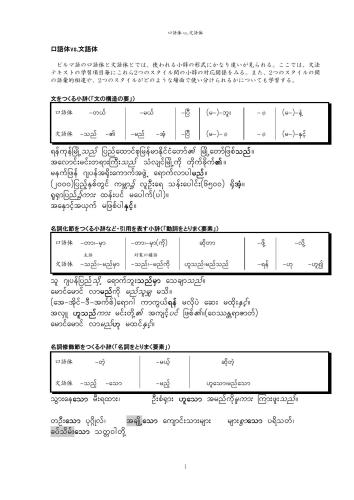 口語体 vs.文語体
口語体vs.文語体
ビルマ語の口語体と文語体とでは、使われる小辞の形式にかなり違いが見られる。ここでは、文法
テキストの学習項目毎にこれら2つのスタイル間の小辞の対応関係をみる。また、2つのスタイルの間
の語彙的相違や、2つのスタイルがどのような場合で使い分けられるかについても学習する。
文をつくる小辞(「文の構造の要」)
口語体 -တယ် -မယ် -ပြီ (မ-)-ဘူး -ဖ (မ-)-နဲ့
文語体 -သည် -၏ -မည် -အံ့ -ပြီ (မ-)-ဖ (မ-)-နှင့်
ရန်ကုန်မြို့သည် ပြည်ထောင်စုမြန်မာနိုင်ငံတော်၏ မြို့တော်ဖြစ်သည်။
အလောင်းမင်းတရားကြီးသည် သံလျင်မြို့ကို တိုက်ခိုက်၏။
မနက်ဖြန် ဂျပန်အရိုးကောက်အဖွဲ့ ရောက်လာပါမည်။
(၂၀၀၀)ပြည့်နှစ်တွင် ကမ္ဘာ့ လူဦးရေ သန်းပေါင်း(၆၅၀၀) ရှိအံ့။
ရုရှားပြည်၌ကား ထန်းပင် မပေါက်(ပါ)။
အနှောင့်အယှက် မဖြစ်ပါနှင့်။
名詞化節をつくる小辞など・引用を表す小辞(「動詞をとりまく要素」)
口語体 -တာ၊-မှာ -တာ၊-မှာ(ကို) ဆိုတာ -ဖို့ -လို့
主語 対象の補語
文語体 -သည်၊-မည်မှာ -သည်၊-မည်ကို ဟူသည်၊မည်သည် -ရန် -ဟု -ဟူ၍
သူ ဂျပန်ပြည်သို့ ရောက်ဘူးသည်မှာ သေချာသည်။
မောင်မောင် လာမည်ကို မည်သူမျှ မသိ။
(အေ-အိုင်-ဒီ-အက်စ်)ရောဂါ ကာကွယ်ရန် မလိုပဲ ဆေး မထိုးနှင့်။
အလှူ ဟူသည်ကား မင်းတို့၏ အကျင့်ပင် ဖြစ်၏။(ဝေဿန္တရာဇာတ်)
မောင်မောင် လာမည်ဟု မထင်နှင့်။
名詞修飾節をつくる小辞(「名詞をとりまく要素」)
口語体 -တဲ့ -မယ့် ဆိုတဲ့
文語体 -သည့် -သော -မည့် ဟူသော၊မည်သော
သွားနေသော မီးရထား၊ ဦးစံရှား ဟူသော အမည်ကိုမူကား ကြားဖူးသည်။
တဦးသော ပုဂ္ဂိုလ်၊ အချို့သော ကျောင်းသားများ များစွာသော ပရိသတ်၊
ခပ်သိမ်းသော သတ္တဝါတို့
1